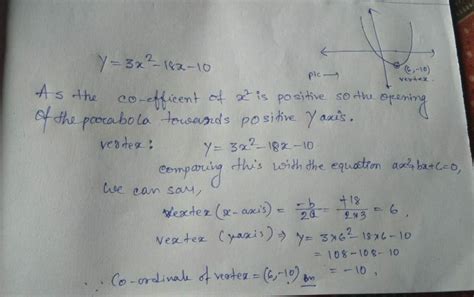 y = 3x² - 18x - 10
pic →
(6, -10)
vertex.
As the co-efficent of x² is positive so the opening
of the parabola towards positive y axis.
vertex: y = 3x² - 18x - 10
comparing this with the equation ax²+bx+c=0,
we can say,
vextex (x-axis) = -b/2a = +18/2×3 = 6,
vextex (yaxis) ⇒ y = 3×6² - 18×6 - 10
= 108 - 108 - 10
= -10.
∴ Co-ordinate of vertex = (6, -10)